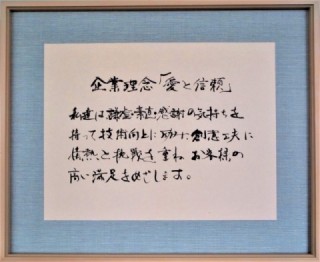 企業理念「愛と信頼」
私達は謙虚・素直・感謝の気持ちを
持って技術向上に努め、創意工夫に
情熱と挑戦を重ね お客様の
高い満足をめざします。